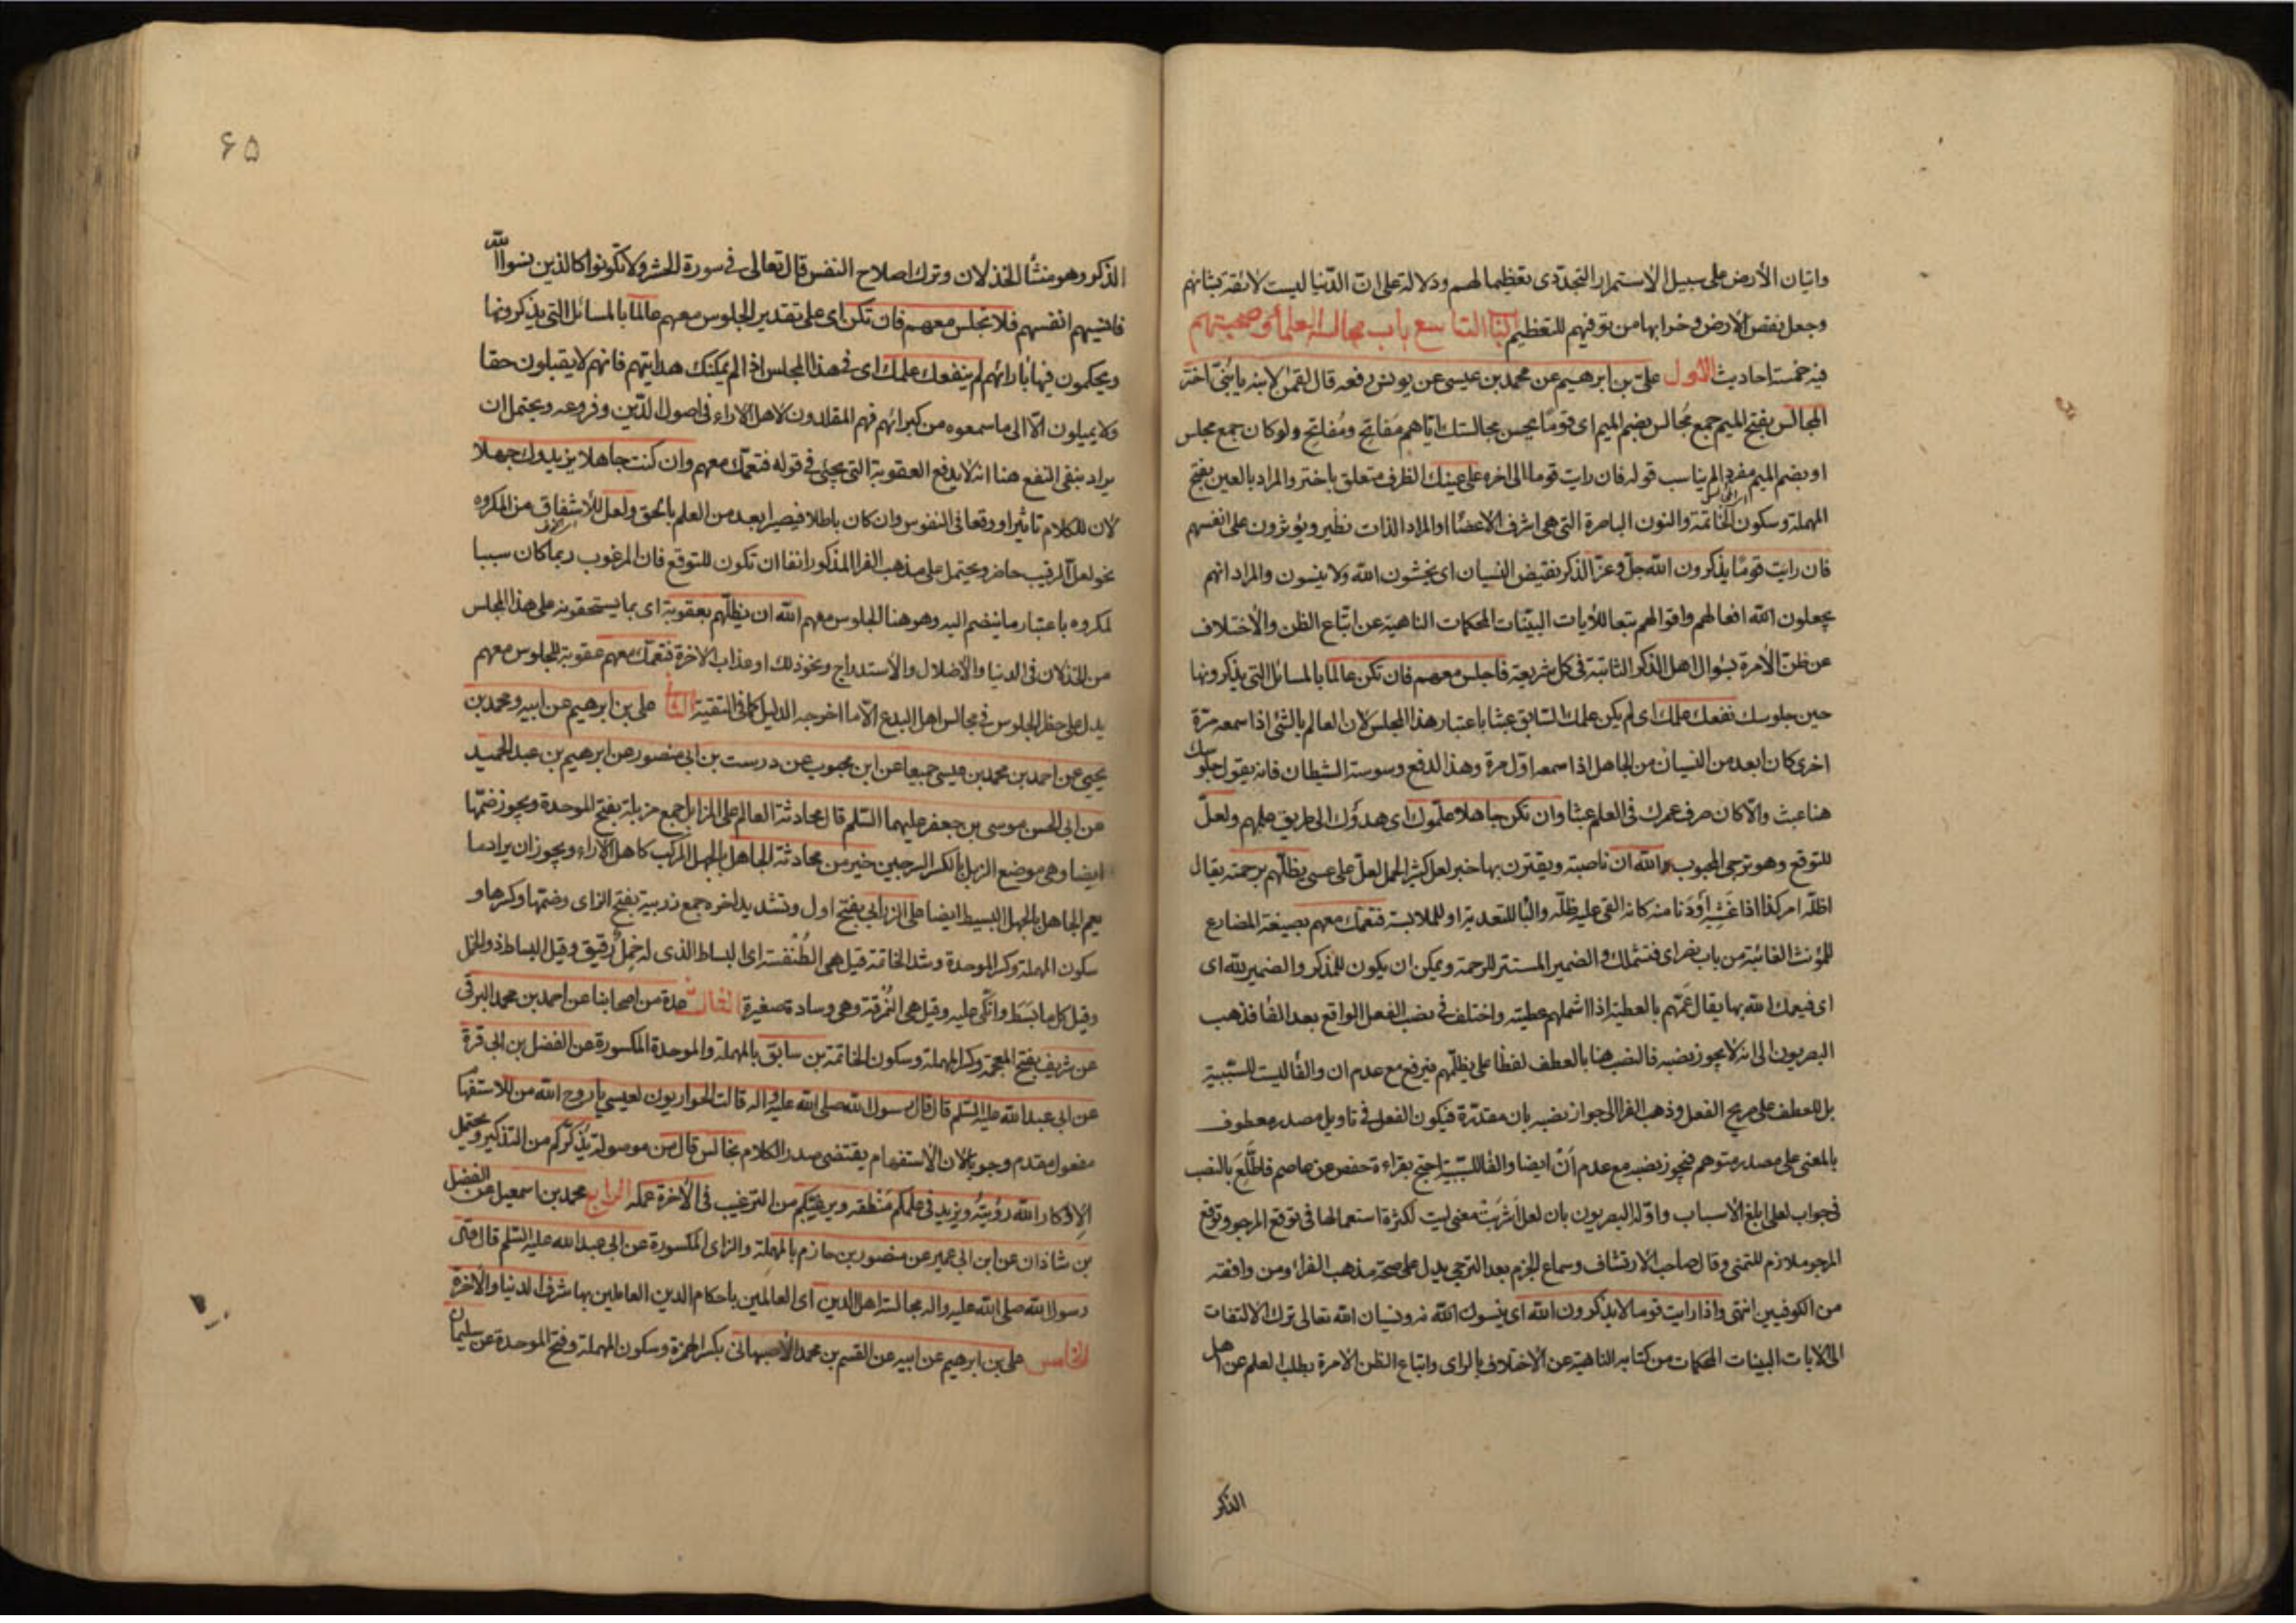 واتيان الأرض على سبيل الاستمرار التجددى تعظيما لهم ودلالة على ان الدنيا ليست لائقة بشانهم
وجعل نقص الارض وخرابها من توفيهم للتعظيم الباب التاسع باب مجالسة العلماء وصحبتهم
فيه خمسة احاديث الأول على بن ابرهيم عن محمد بن عيسى عن يونس رفعه قال قال لقمن لابنه يا بنى اختر
المجالس بفتح الميم جمع مجالس بضم الميم اى قوما يحسن مجالستك اياهم مفاتح ومفاتح ولو كان جمع مجلس
او بضم الميم مفرد الم يناسب قوله فان رايت قوما الى اخره على عينك الظرف متعلق باختر والمراد بالعين بفتح
المهملة وسكون الخاتمة والنون الباصرة التى هى اشرف الاعضاء او المراد الذات نظير ويؤثرون على انفسهم
فان رايت قوما يذكرون الله جل وعز الذكر نقيض النسيان اى يخشون الله ولا ينسون والمراد انهم
يجعلون الله افعالهم واقوالهم تبعا للآيات البينات المحكمات الناهية عن اتباع الظن والأختلاف
عن ظن الآمرة بسؤال اهل الذكر الثابتة فى كل شريعة فاجلس معهم فان تكن عالما بالمسائل التى يذكرونها
حين جلوسك نفعك علمك اى لم يكن علمك السابق عبثا باعتبار هذا المجلس لان العالم بالشئ اذا سمعه مرة
اخرى كان ابعد من النسيان من الجاهل اذا سمعه اول مرة وهذا لدفع وسوسة الشيطان فانه يقول جلوسك
هنا عبث والا كان صرف عمرك فى العلم عبثا وان تكن جاهلا علموك اى هدوك الى طريق علمهم ولعل
للتوقع وهو ترجى المحبوب الله ان ناصبة ويقترن بها خبر لعل كثيرا لحمل لعل على عسى يظلهم برحمته يقال
اظله امر كذا اذا غشيه او دنا منه كانه القى عليه ظله والبا للتعدية او للملابسة فتعمك معهم بصيغة المضارع
للمؤنث الغائبة من باب نصر اى فتشملك والضمير المستتر للرحمة ويمكن ان يكون للمذكر والضمير لله اى
اى فيعمك الله بها يقال عمهم بالعطية اذا اشملهم عطيته واختلف فى نصب الفعل الواقع بعد الفا فذهب
البصريون الى انه لا يجوز نصبه فالنصب هنا بالعطف لفظا على يظلهم فيرفع مع عدم ان والفا ليست للسببية
بل للعطف على صريح الفعل وذهب الفرا الى جواز نصبه بان مقدرة فيكون الفعل فى تاويل مصدر معطوف
بالمعنى على مصدر متوهم فيجوز نصبه مع عدم ان ايضا والفا للسببية احتج بقراءة حفص عن عاصم فاطلع بالنصب
فى جواب لعلى ابلغ الأسباب واوله البصريون بان لعل اشربت معنى ليت لكثرة استعمالها فى توقع المرجو وتوقع
المرجو ملازم للتمنى وقال صاحب الارتشاف وسماع الجزم بعد الترجى يدل على صحة مذهب الفراء ومن وافقه
من الكوفيين انتهى واذا رايت قوما لا يذكرون الله اى ينسون الله ونسيان الله تعالى ترك الالتفات
الى الايات البينات المحكمات من كتابه الناهية عن الاختلاف بالراى واتباع الظن الآمرة بطلب العلم عن اهل
الذكر
۶۵
الذكر وهو منشأ الخذلان وترك اصلاح النفس قال تعالى فى سورة الحشر ولا تكونوا كالذين نسوا الله
فانسيهم انفسهم فلا تجلس معهم فان تكن اى على تقدير الجلوس معهم عالما بالمسائل التى يذكرونها
ويحكمون فيها بآرائهم لم ينفعك علمك اى فى هذا المجلس اذ الم يمكنك هدايتهم فانهم لا يقبلون حقا
ولا يميلون الا الى ما سمعوه من كبرائهم فهم المقلدون لاهل الآراء فى اصول الدين وفروعه ويحتمل ان
يراد بنفى النفع هنا انه لا يدفع العقوبة التى يجئ فى قوله فتعمك معهم وان كنت جاهلا يزيدوك جهلا
لان للكلام تاثيرا ووقعا فى النفوس وان كان باطلا فيصير ابعد من العلم بالحق ولعل للأشفاق من المكروه
نحو لعل الرقيب حاضر ويحتمل على مذهب الفرا المذكور انفا ان تكون للتوقع فان المرغوب ربما كان سببا
لمكروه باعتبار ما ينضم اليه وهو هنا الجلوس معهم الله ان يظلهم بعقوبة اى بما يستحقونه على هذا المجلس
من الخذلان فى الدنيا والأضلال والأستدراج ونحو ذلك او عذاب الآخرة فتعمك معهم عقوبة للجلوس معهم
يدل على حظر الجلوس فى مجالس اهل البدع الا ما اخرجه الدليل كما فى التقية الثانى على بن ابرهيم عن ابيه ومحمد بن
يحيى عن احمد بن محمد بن عيسى جميعا عن ابن محبوب عن درست بن ابى منصور عن ابرهيم بن عبد الحميد
عن ابى الحسن موسى بن جعفر عليهما السلم قال محادثة العالم على المزابل جمع مزبلة بفتح الموحدة ويجوز ضمها
ايضا وهى موضع الزبل بالكسر السرجين خير من محادثة الجاهل بالجهل المركب كاهل الآراء ويجوز ان يراد ما
يعم الجاهل بالجهل البسيط ايضا على الزرابى بفتح اول وتشديد اخره جمع زربية بفتح الزاى وضمها وكسرها و
سكون المهملة وكسر الموحدة وشد الخاتمة قيل هى الطنفسة اى البساط الذى له خمل رقيق وقيل البساط ذو الخمل
وقيل كل ما بسط واتكى عليه وقيل هى النمرقة وهى وسادة صغيرة الثالث عدة من اصحابنا عن احمد بن محمد البرقى
عن شريف بفتح المعجمة وكسر المهملة وسكون الخاتمة بن سابق بالمهملة والموحدة المكسورة عن الفضل بن ابى قرة
عن ابى عبد الله عليه السلم قال قال رسول الله صلى الله عليه واله قالت الحواريون لعيسى يا روح الله من للاستفهام
مفعول مقدم وجوبا لان الأستفهام يقتضى صدر الكلام نجالس قال من موصولة يذكركم من التذكير ويحتمل
الاذكار الله رؤيته ويزيد فى علمكم منطقه ويرغبكم من الترغيب فى الآخرة عمله الرابع محمد بن اسمعيل عن الفضل
بن شاذان عن ابن ابى عمير عن منصور بن حازم بالمهملة والزاى المكسورة عن ابى عبد الله عليه السلم قال قال
رسول الله صلى الله عليه واله مجالسة اهل الدين اى العالمين باحكام الدين العاملين بها شرف الدنيا والآخرة
الخامس على بن ابرهيم عن ابيه عن القسم بن محمد الأصبهانى بكسر الهمزة وسكون المهملة وفتح الموحدة عن سليمان